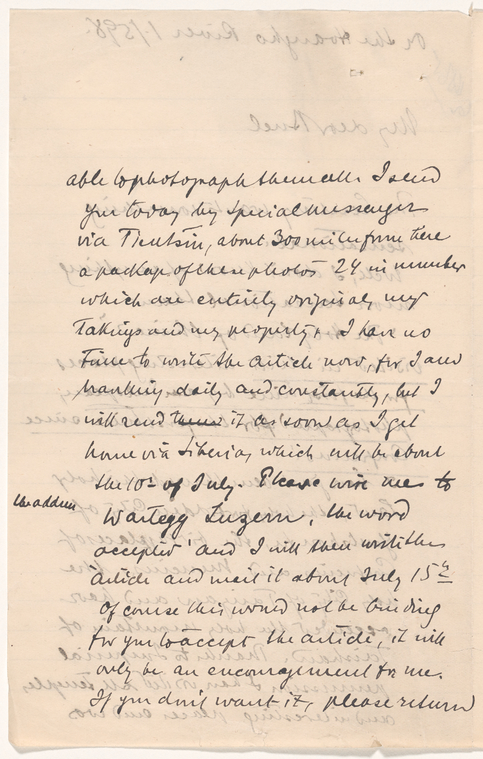 able to photograph them all. I send
you to day by special messenger
via Tientsin, about 300 miles from here
a package of these photos 24 in number
which are entirely original, my
takings and my property. I have no
time to write the article now, for I am
travelling daily and constantly, but I
will send it as soon as I get
home via Siberia, which will be about
the 10th of July. Please wire me to
the address
Wartegg Luzern, the word
'accepted' and I will then write the
article and mail it about July 15th
Of course this would not be binding
for you to accept the article, it will
only be an encouragement for me.
If you don't want it, please return